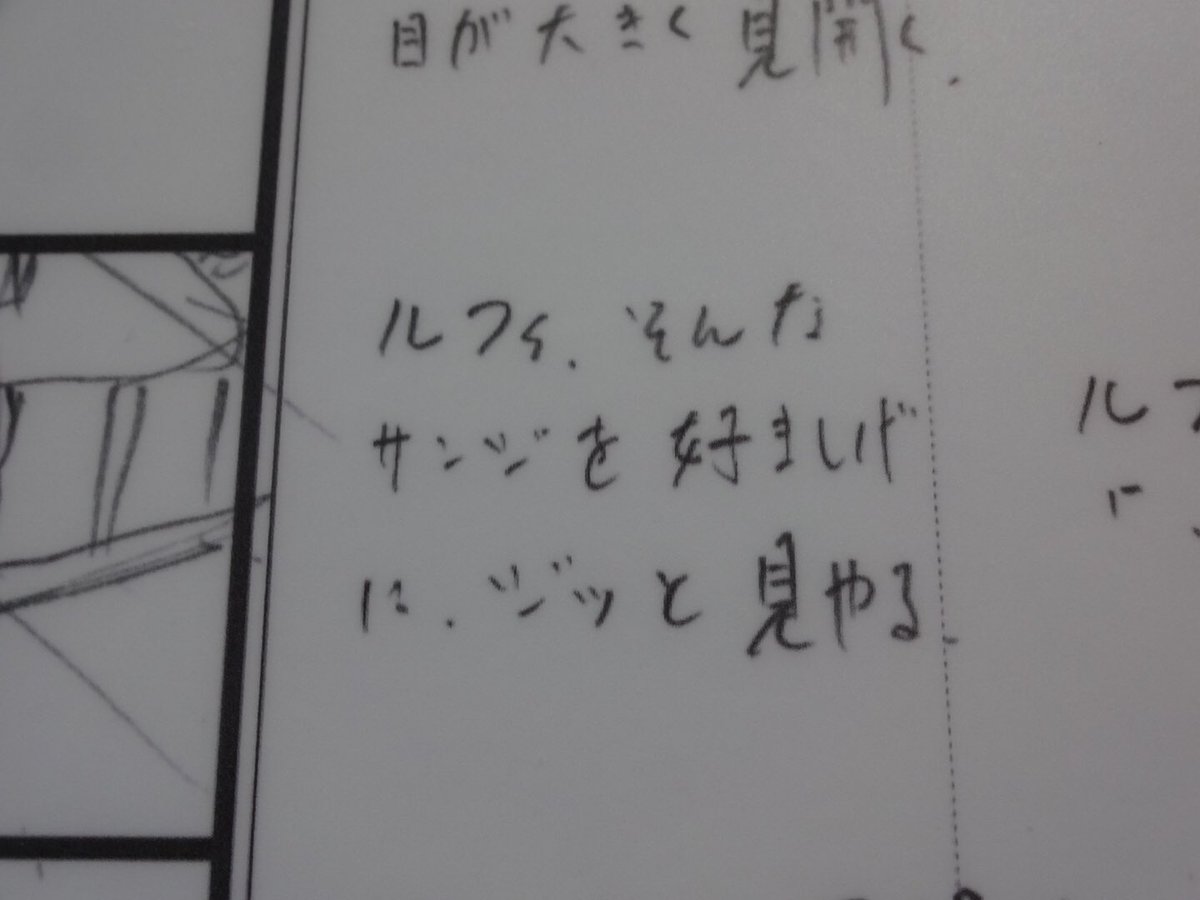 目が大きく見開く.
ルフィ. そんな
サンジを好ましげ
に. ジッと見やる.
ルフ
に